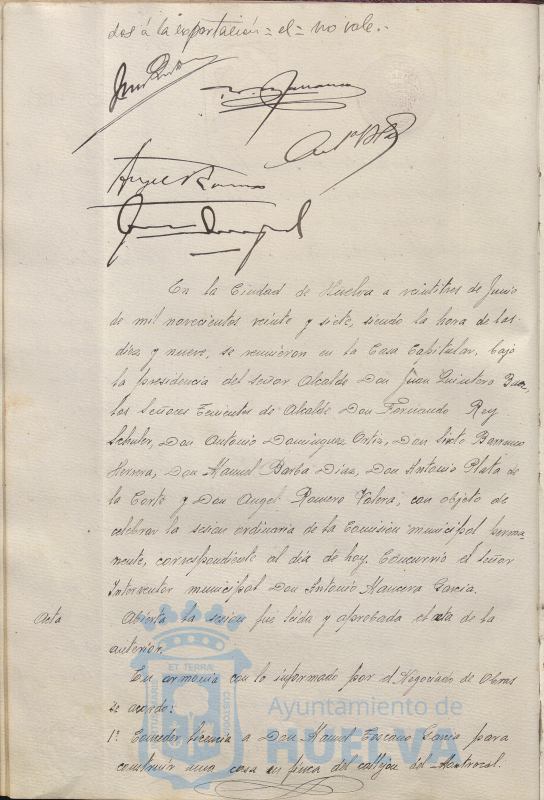 dos á la exportación = el = no vale.-
En la Ciudad de Huelva a veintitres de Junio
de mil novecientos veinte y siete, siendo la hora de las
diez y nueve, se reunieron en la Casa Capitular, bajo
la presidencia del señor Alcalde Don Juan Quintero Baez,
los señores Tenientes de Alcalde Don Fernando Rey
Schuler, Don Antonio Dominguez Ortiz, Don Sixto Barranco
Herrera, Don Manuel Barba Diaz, Don Antonio Plata de
la Corte y Don Angel Romero Valera, con objeto de
celebrar la sesion ordinaria de la Comisión municipal perma-
nente, correspondiente al dia de hoy. Concurrio el señor
Interventor municipal Don Antonio García.
Acta
Abierta la sesion fué leida y aprobada el acta de la
anterior.
En armonia con lo informado por el Negociado de Obras
se acordo:
1º Conceder licencia a Don Manuel Toscano Garcia para
construir una casa en finca del callejon del
ET TERRAE
CUSTODIA
Ayuntamiento de
HUELVA